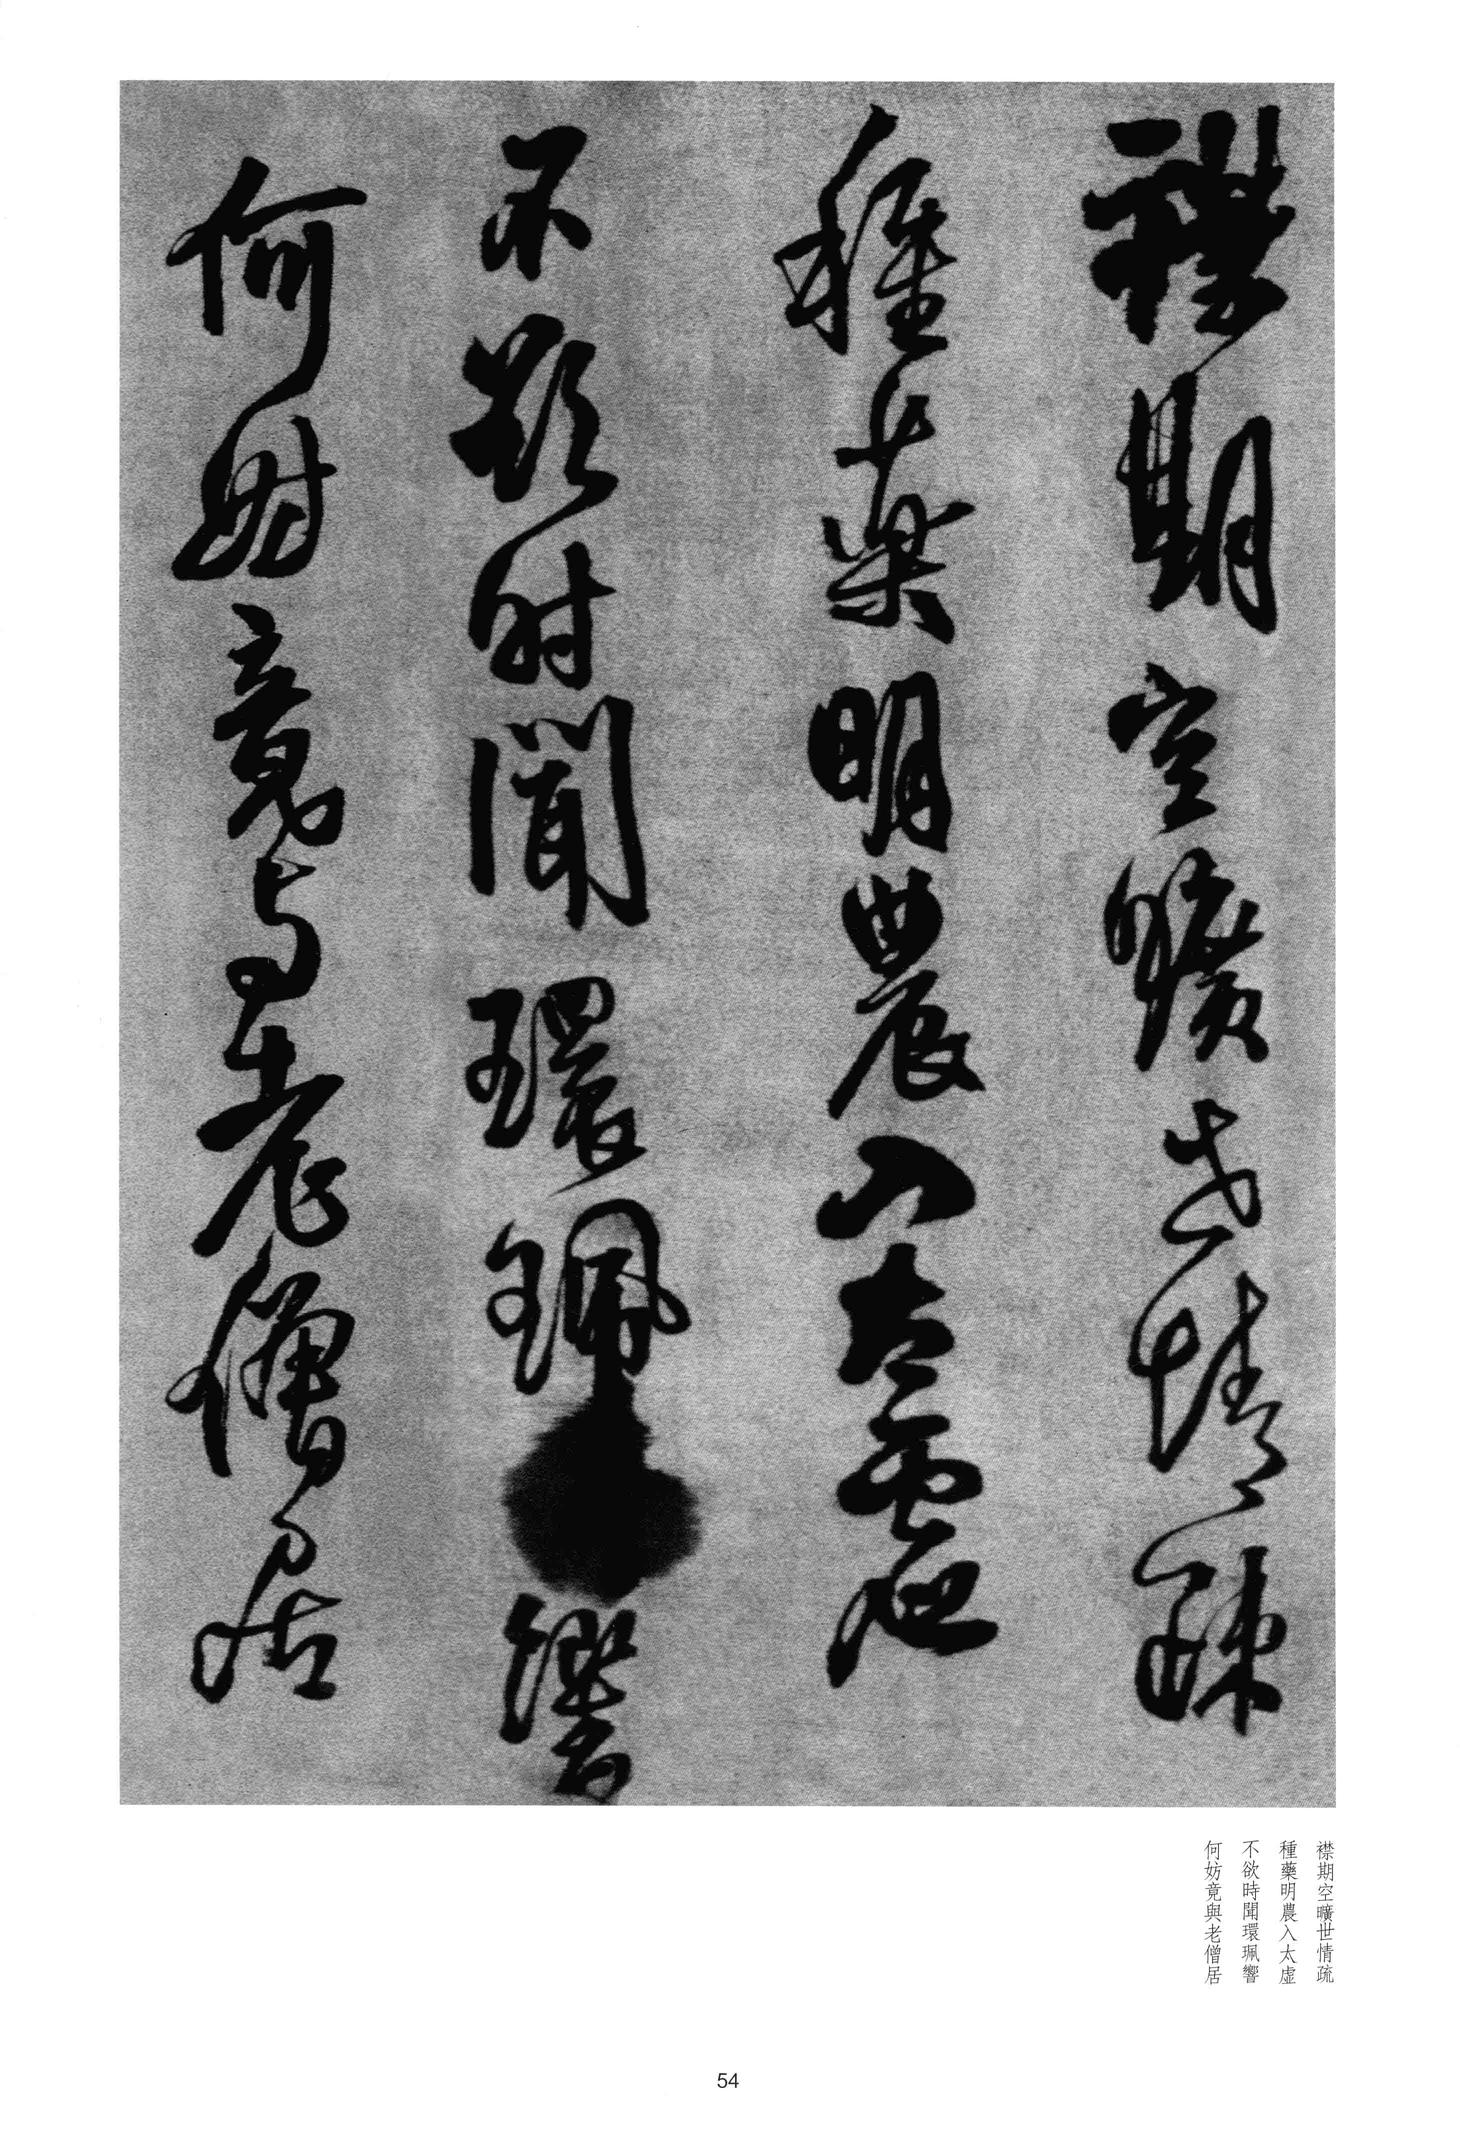 襟期空曠世情疏
種藥明農入太虛
不欲時聞環珮響
何妨竟與老僧居
襟期空曠世情疏
種藥明農入太虛
不欲時聞環珮響
何妨竟與老僧居
54